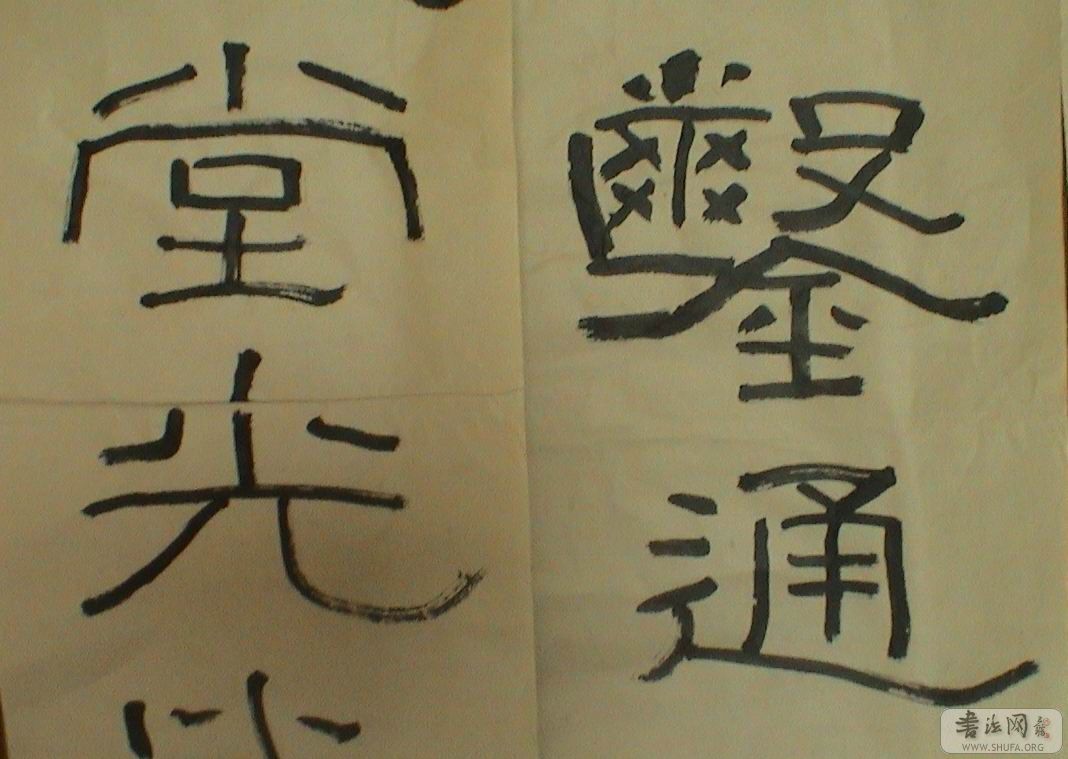 鑿通
堂光
书法网
WWW.SHUFA.ORG